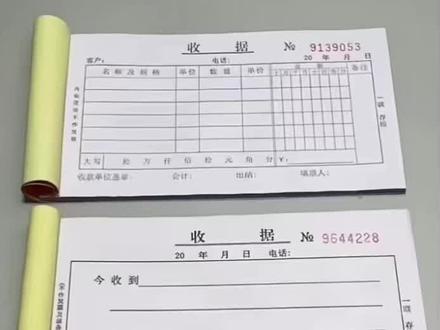 收 据 № 9139053
客户: 电话: 20 年 月 日
名称及规格 单位 数量 单价 金额 备注
大写 拾 万 仟 佰 拾 元 角 分 ¥:
收款单位盖章: 会计: 出纳: 填票人:
一联 存根
收 据 № 9644228
20 年 月 日 电话:
今收到